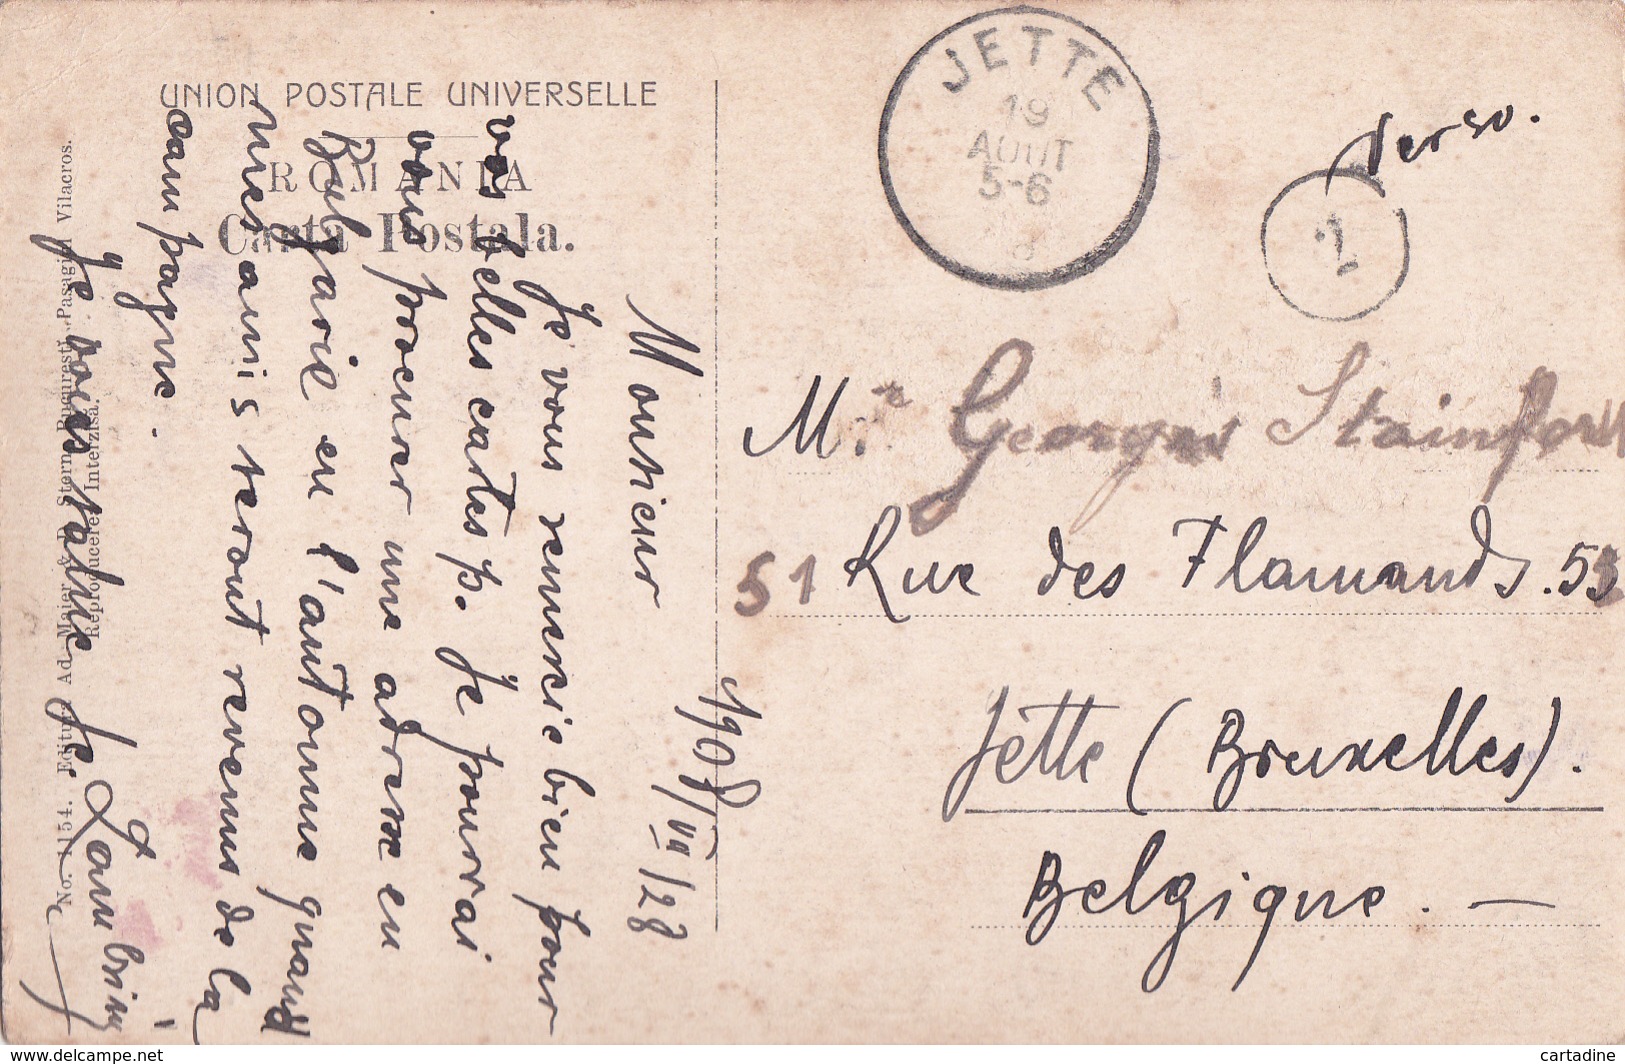 UNION POSTALE UNIVERSELLE
ROMANIA
Carta Postala.
No. 1154. Editura Ad. Maier & D. Stern, Bucuresti, Pasagiu Vilacros.
Reproducerea Interzisă.
1908/VII/28
Monsieur
Je vous remercie bien pour
vos belles cartes p. Je pourrai
vous procurer une adresse en
Bulgarie en l'automne quand
mes amis seront revenus de la
campagne.
Je vois salue Je.
JETTE
19
AOUT
5-6
8
Verso.
2
Mr Georges Stainforth
51 Rue des Flamands. 53
Jette (Bruxelles).
Belgique. —
www.delcampe.net
cartadine